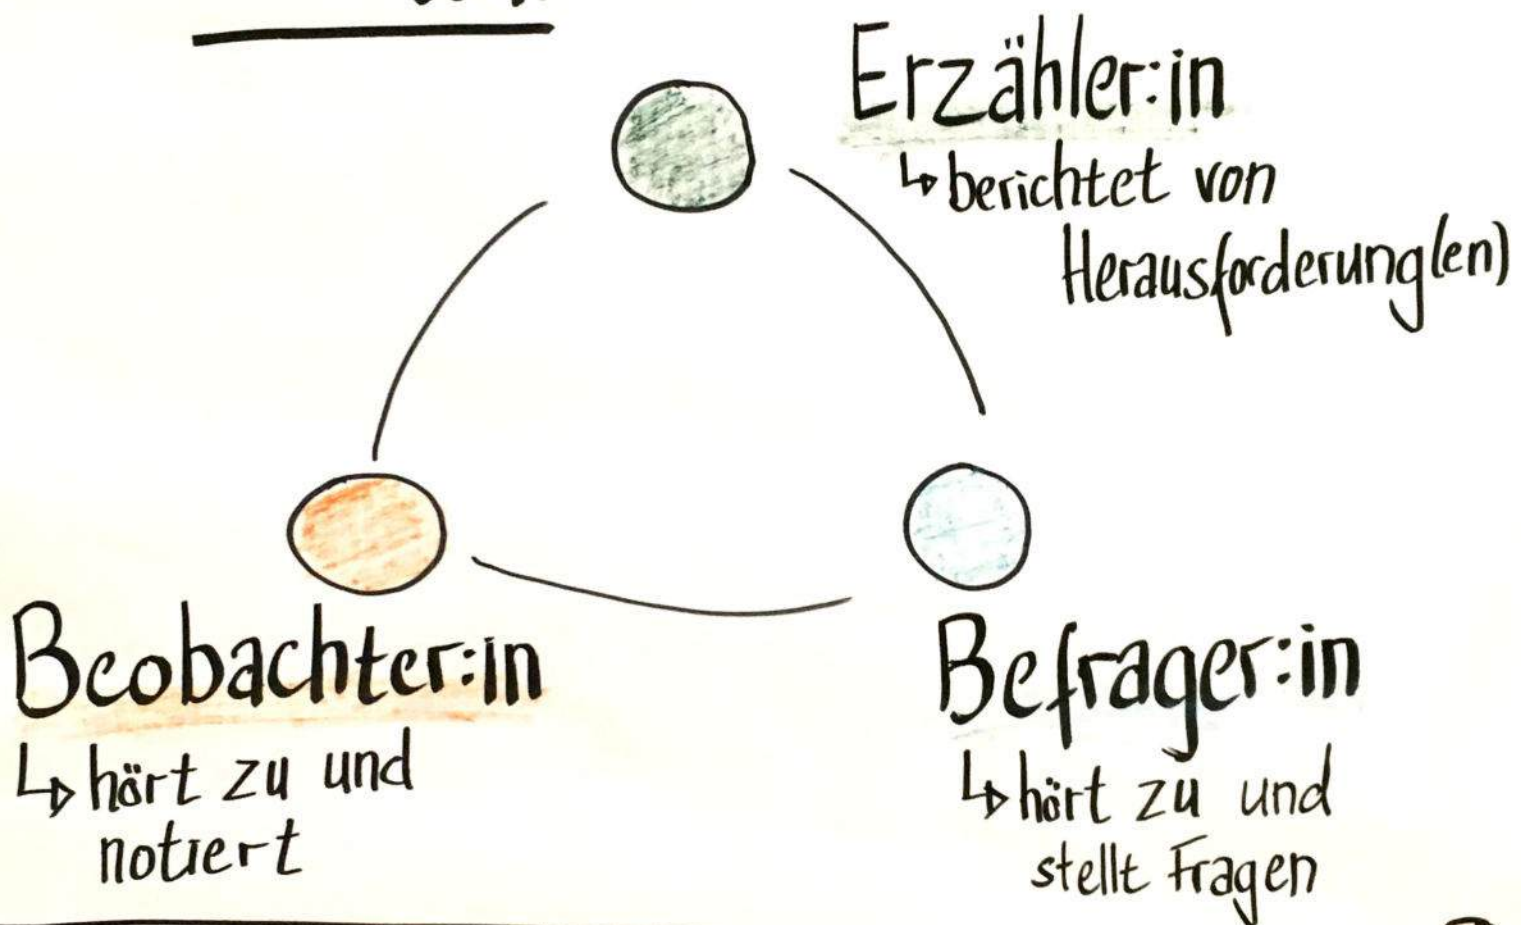 Erzähler:in
↳ berichtet von
Herausforderung(en)
Beobachter:in
↳ hört zu und
notiert
Befrager:in
↳ hört zu und
stellt Fragen